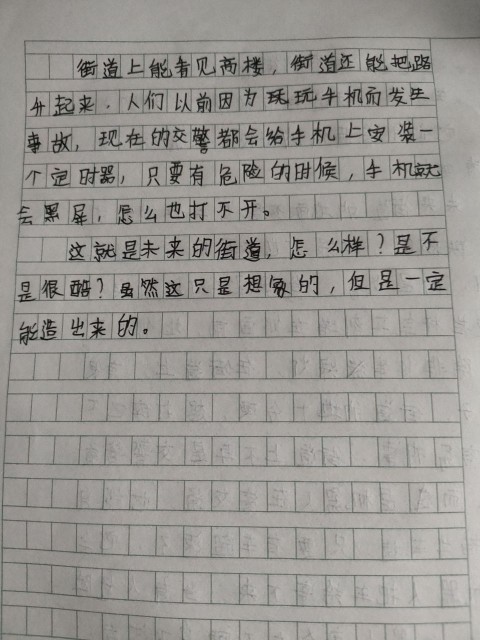 街道上能看见高楼，街道还能把路
升起来。人们以前因为玩玩手机而发生
事故，现在的交警都会给手机上安装一
个定时器，只要有危险的时候，手机就
会黑屏，怎么也打不开。
这就是未来的街道，怎么样？是不
是很酷？虽然这只是想象的，但是一定
能造出来的。